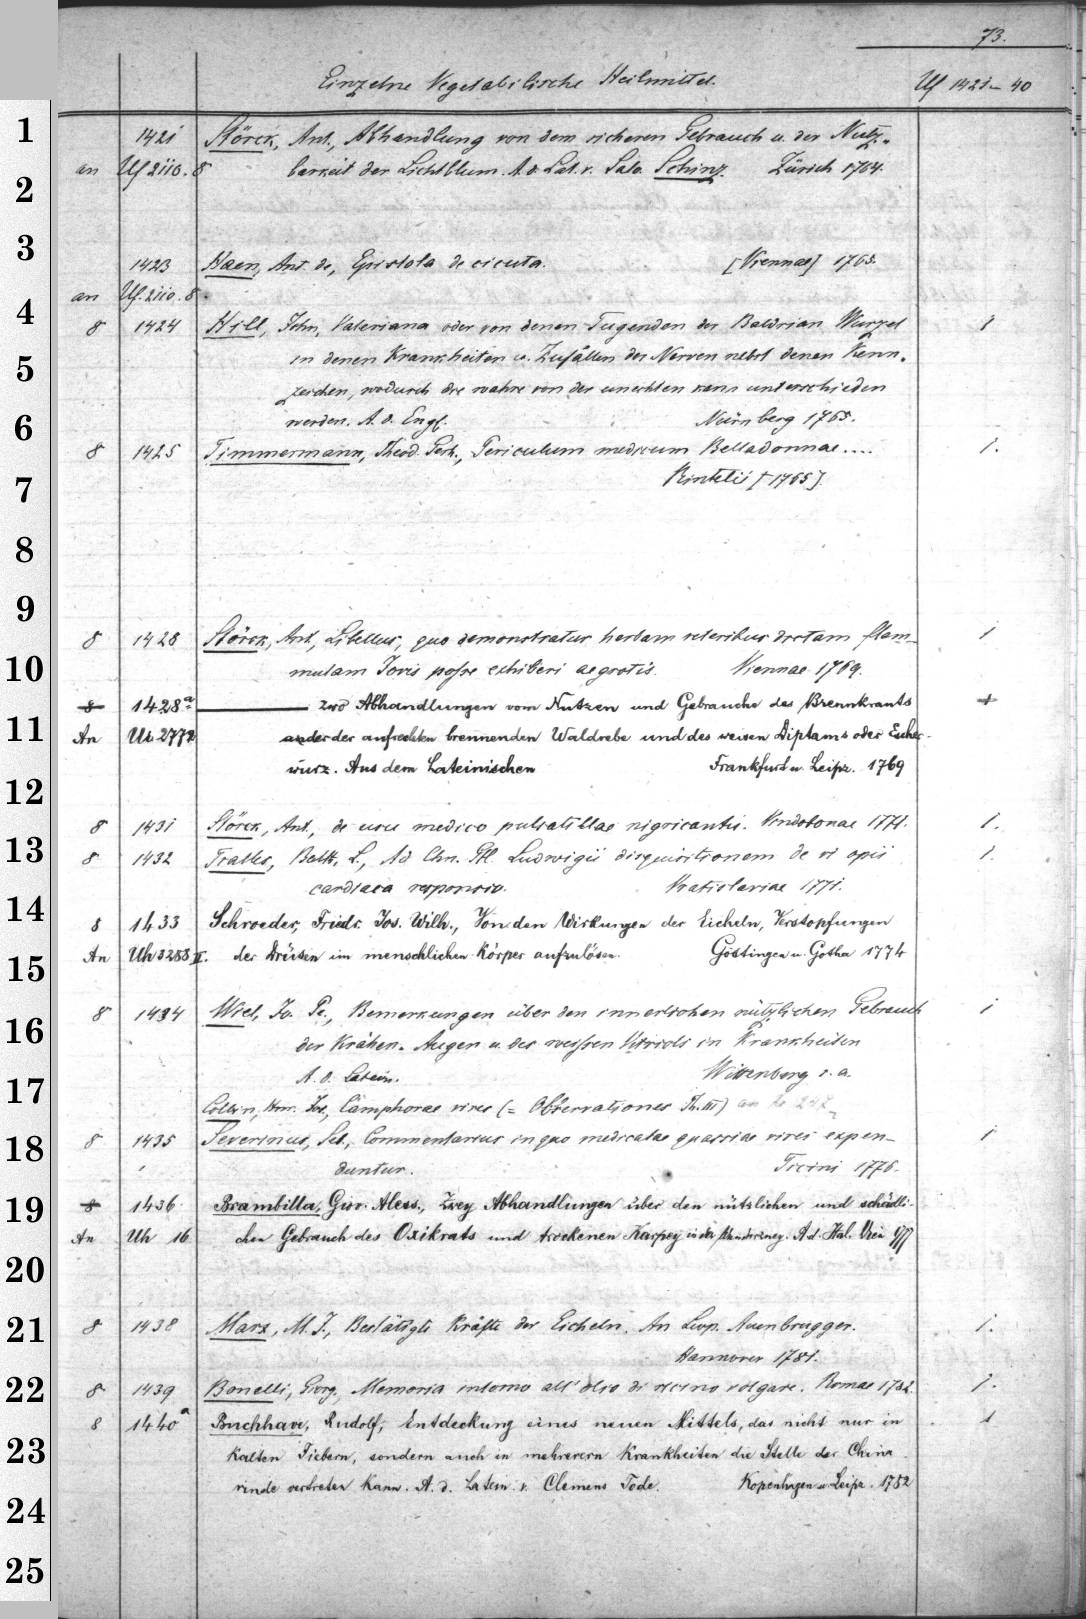 73.
Einzelne Vegetabilische Heilmittel. Uf 1421-40
1
1421 Störck, Ant., Abhandlung von dem sicheren Gebrauch u. der Nutz-
an Uf 2110. 8 barkeit der Lichtblum. A. d. Lat. v. Salo. Schinz. Zürich 1764.
2
3
1423 Haen, Ant. de, Epistola de cicuta. [Viennae] 1765.
an Uf. 2110. 8.
4
8 1424 Hill, John, Valeriana oder von denen Tugenden der Baldrian Wurzel 1
5
in denen Krankheiten u. Zufällen der Nerven nebst denen Kenn-
zeichen, wodurch die wahre von der unechten kann unterschieden
6
werden. A. d. Engl. Nürnberg 1765.
8 1425 Timmermann, Theod. Gerh., Periculum medicum Belladonnae.... 1.
7
Rintelii [1765].
8
9
8 1428 Störck, Ant., Libellus, quo demonstratur herbam veteribus dictam flam- 1
10
mulam Jovis posse exhiberi aegrotis. Viennae 1769.
8 1428a. zwo Abhandlungen vom Nutzen und Gebrauche des Brennkrauts 1
11
An Us 2772 oder der aufrechten brennenden Waldrebe und des weisen Diptams oder Escher-
wurz. Aus dem Lateinischen Frankfurt u. Leipz. 1769
12
8 1431 Störck, Ant., de usu medico pulsatillae nigricantis. Vindobonae 1771. 1.
13
8 1432 Tralles, Balth. L., Ad Chn. Gtl. Ludwigii disquisitionem de vi opii 1.
cardiaca responsio. Vratislaviae 1771.
14
8 1433 Schroeder, Friedr. Jos. Wilh., Von den Wirkungen der Eicheln, Verstopfungen
An Uh 3288 II. der Drüsen im menschlichen Körper aufzulösen. Göttingen u. Gotha 1774
15
8 1434 Wiel, Jo. Pe., Bemerkungen über den innerlichen nützlichen Gebrauch 1
16
der Krähen-Augen u. des weissen Vitriols in Krankheiten
A. d. Latein. Wittenberg s. a.
17
Collin, Hnr. Jos., Camphorae vires (= Observationes Th. III)
18
8 1435 Severinus, Seb., Commentarius in quo medicatae quassiae vires expen- 1
duntur. Ticini 1776.
19
8 1436 Brambilla, Giov. Aless., Zwey Abhandlungen über den nützlichen und schädli-
An Uh 16 chen Gebrauch des Oxikrats und trockenen Karpey in der Wundarzney. A. d. Ital. Wien 1777
20
21
8 1438 Marx, M. J., Bestätigte Kräfte der Eicheln. An Leop. Auenbrugger. 1.
Hannover 1781.
22
8 1439 Bonelli, Giorg., Memoria intorno all' olio di ricino volgare. Romae 1782. 1.
8 1440a Buchhave, Rudolf, Entdeckung eines neuen Mittels, das nicht nur in 1
23
kalten Fiebern, sondern auch in mehrerern Krankheiten die Stelle der China
rinde vertreten kann. A. d. Latein. v. Clemens Tode. Kopenhagen u. Leipz. 1782
24
25